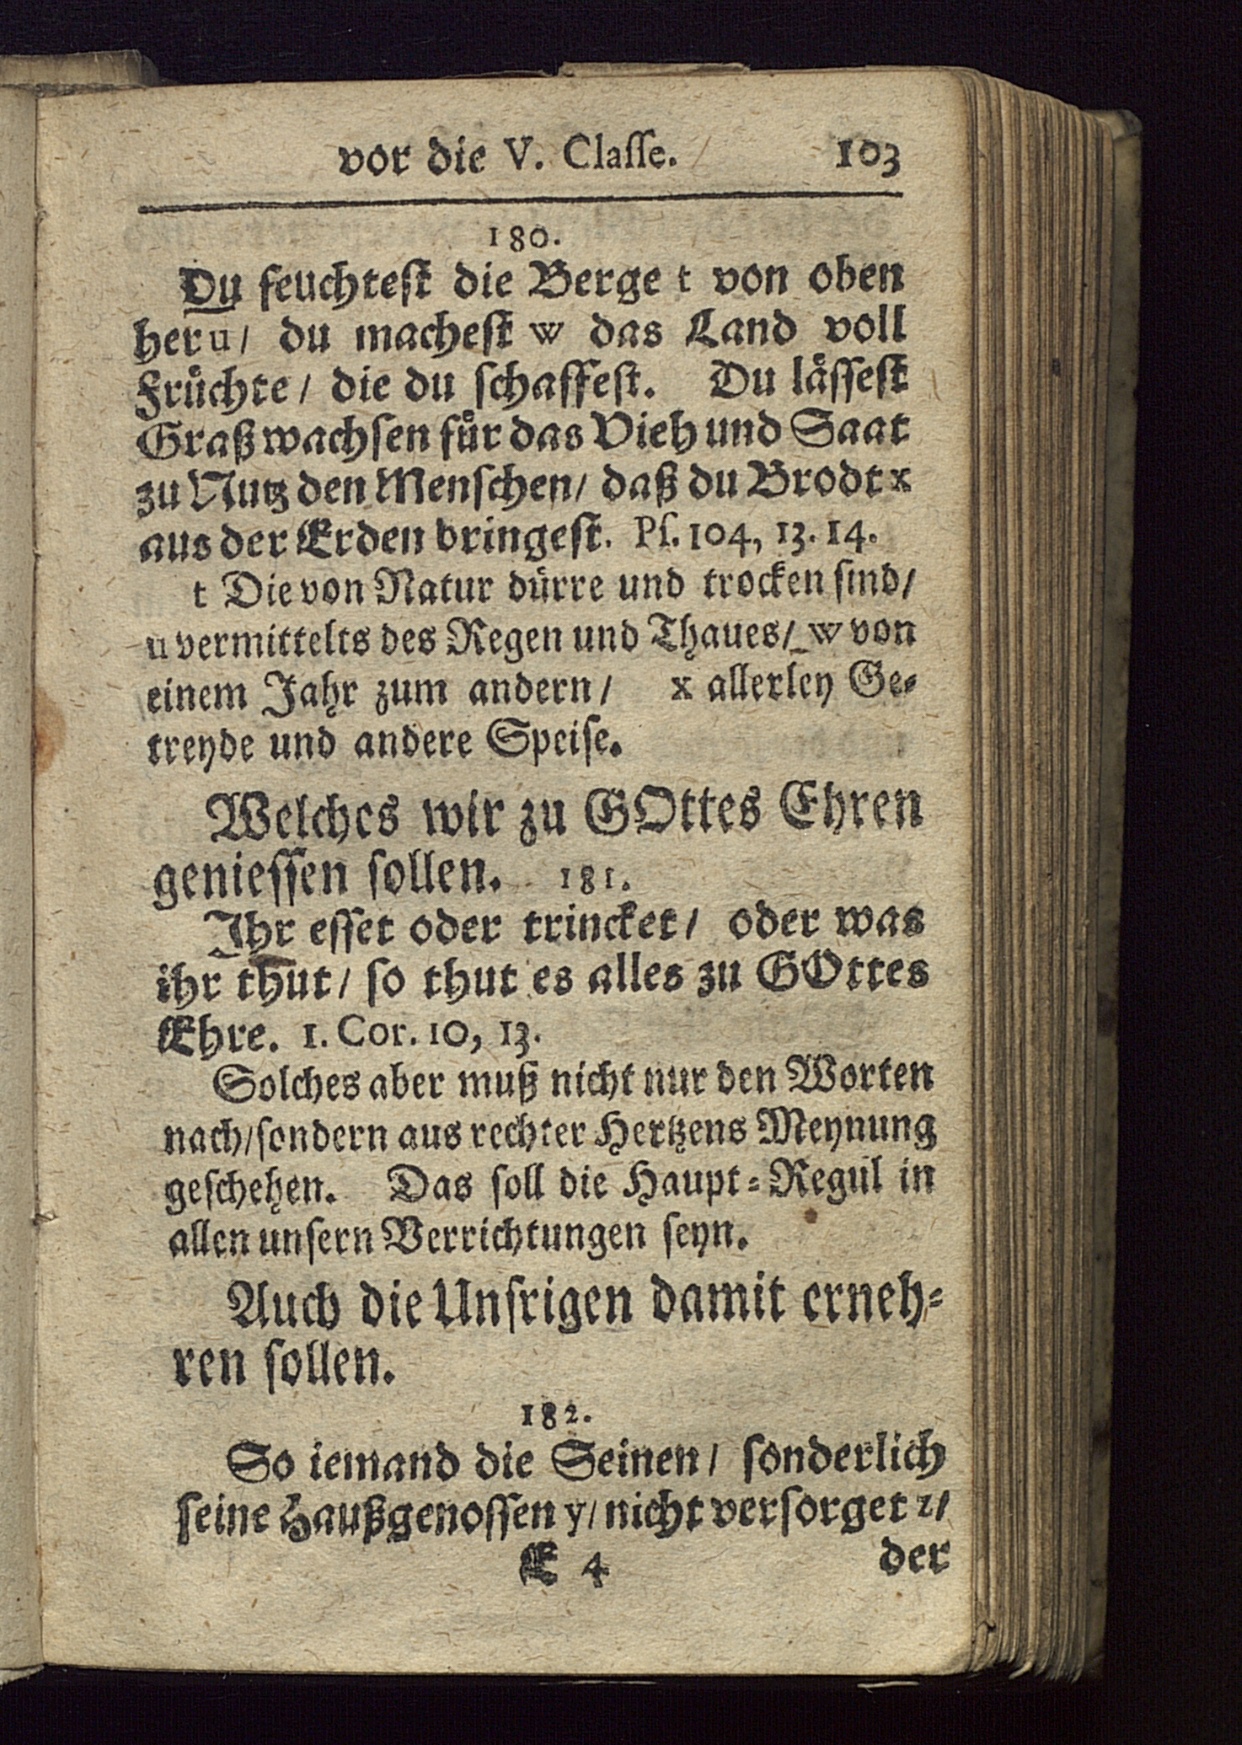 vor die V. Classe. 103
180.
Du feuchtest die Berge t von oben
her u / du machest w das Land voll
Früchte / die du schaffest. Du lässest
Graß wachsen für das Vieh und Saat
zu Nutz den Menschen / daß du Brodt x
aus der Erden bringest. Ps. 104, 13. 14.
t Die von Natur dürre und trocken sind /
u vermittelts des Regen und Thaues / w von
einem Jahr zum andern / x allerley Ge-
treyde und andere Speise.
Welches wir zu GOttes Ehren
geniessen sollen. 181.
Ihr esset oder trincket / oder was
ihr thut / so thut es alles zu GOttes
Ehre. 1. Cor. 10, 13.
Solches aber muß nicht nur den Worten
nach / sondern aus rechter Hertzens Meynung
geschehen. Das soll die Haupt-Regul in
allen unsern Verrichtungen seyn.
Auch die Unsrigen damit erneh-
ren sollen.
182.
So iemand die Seinen / sonderlich
seine Haußgenossen y / nicht versorget z /
E 4 der